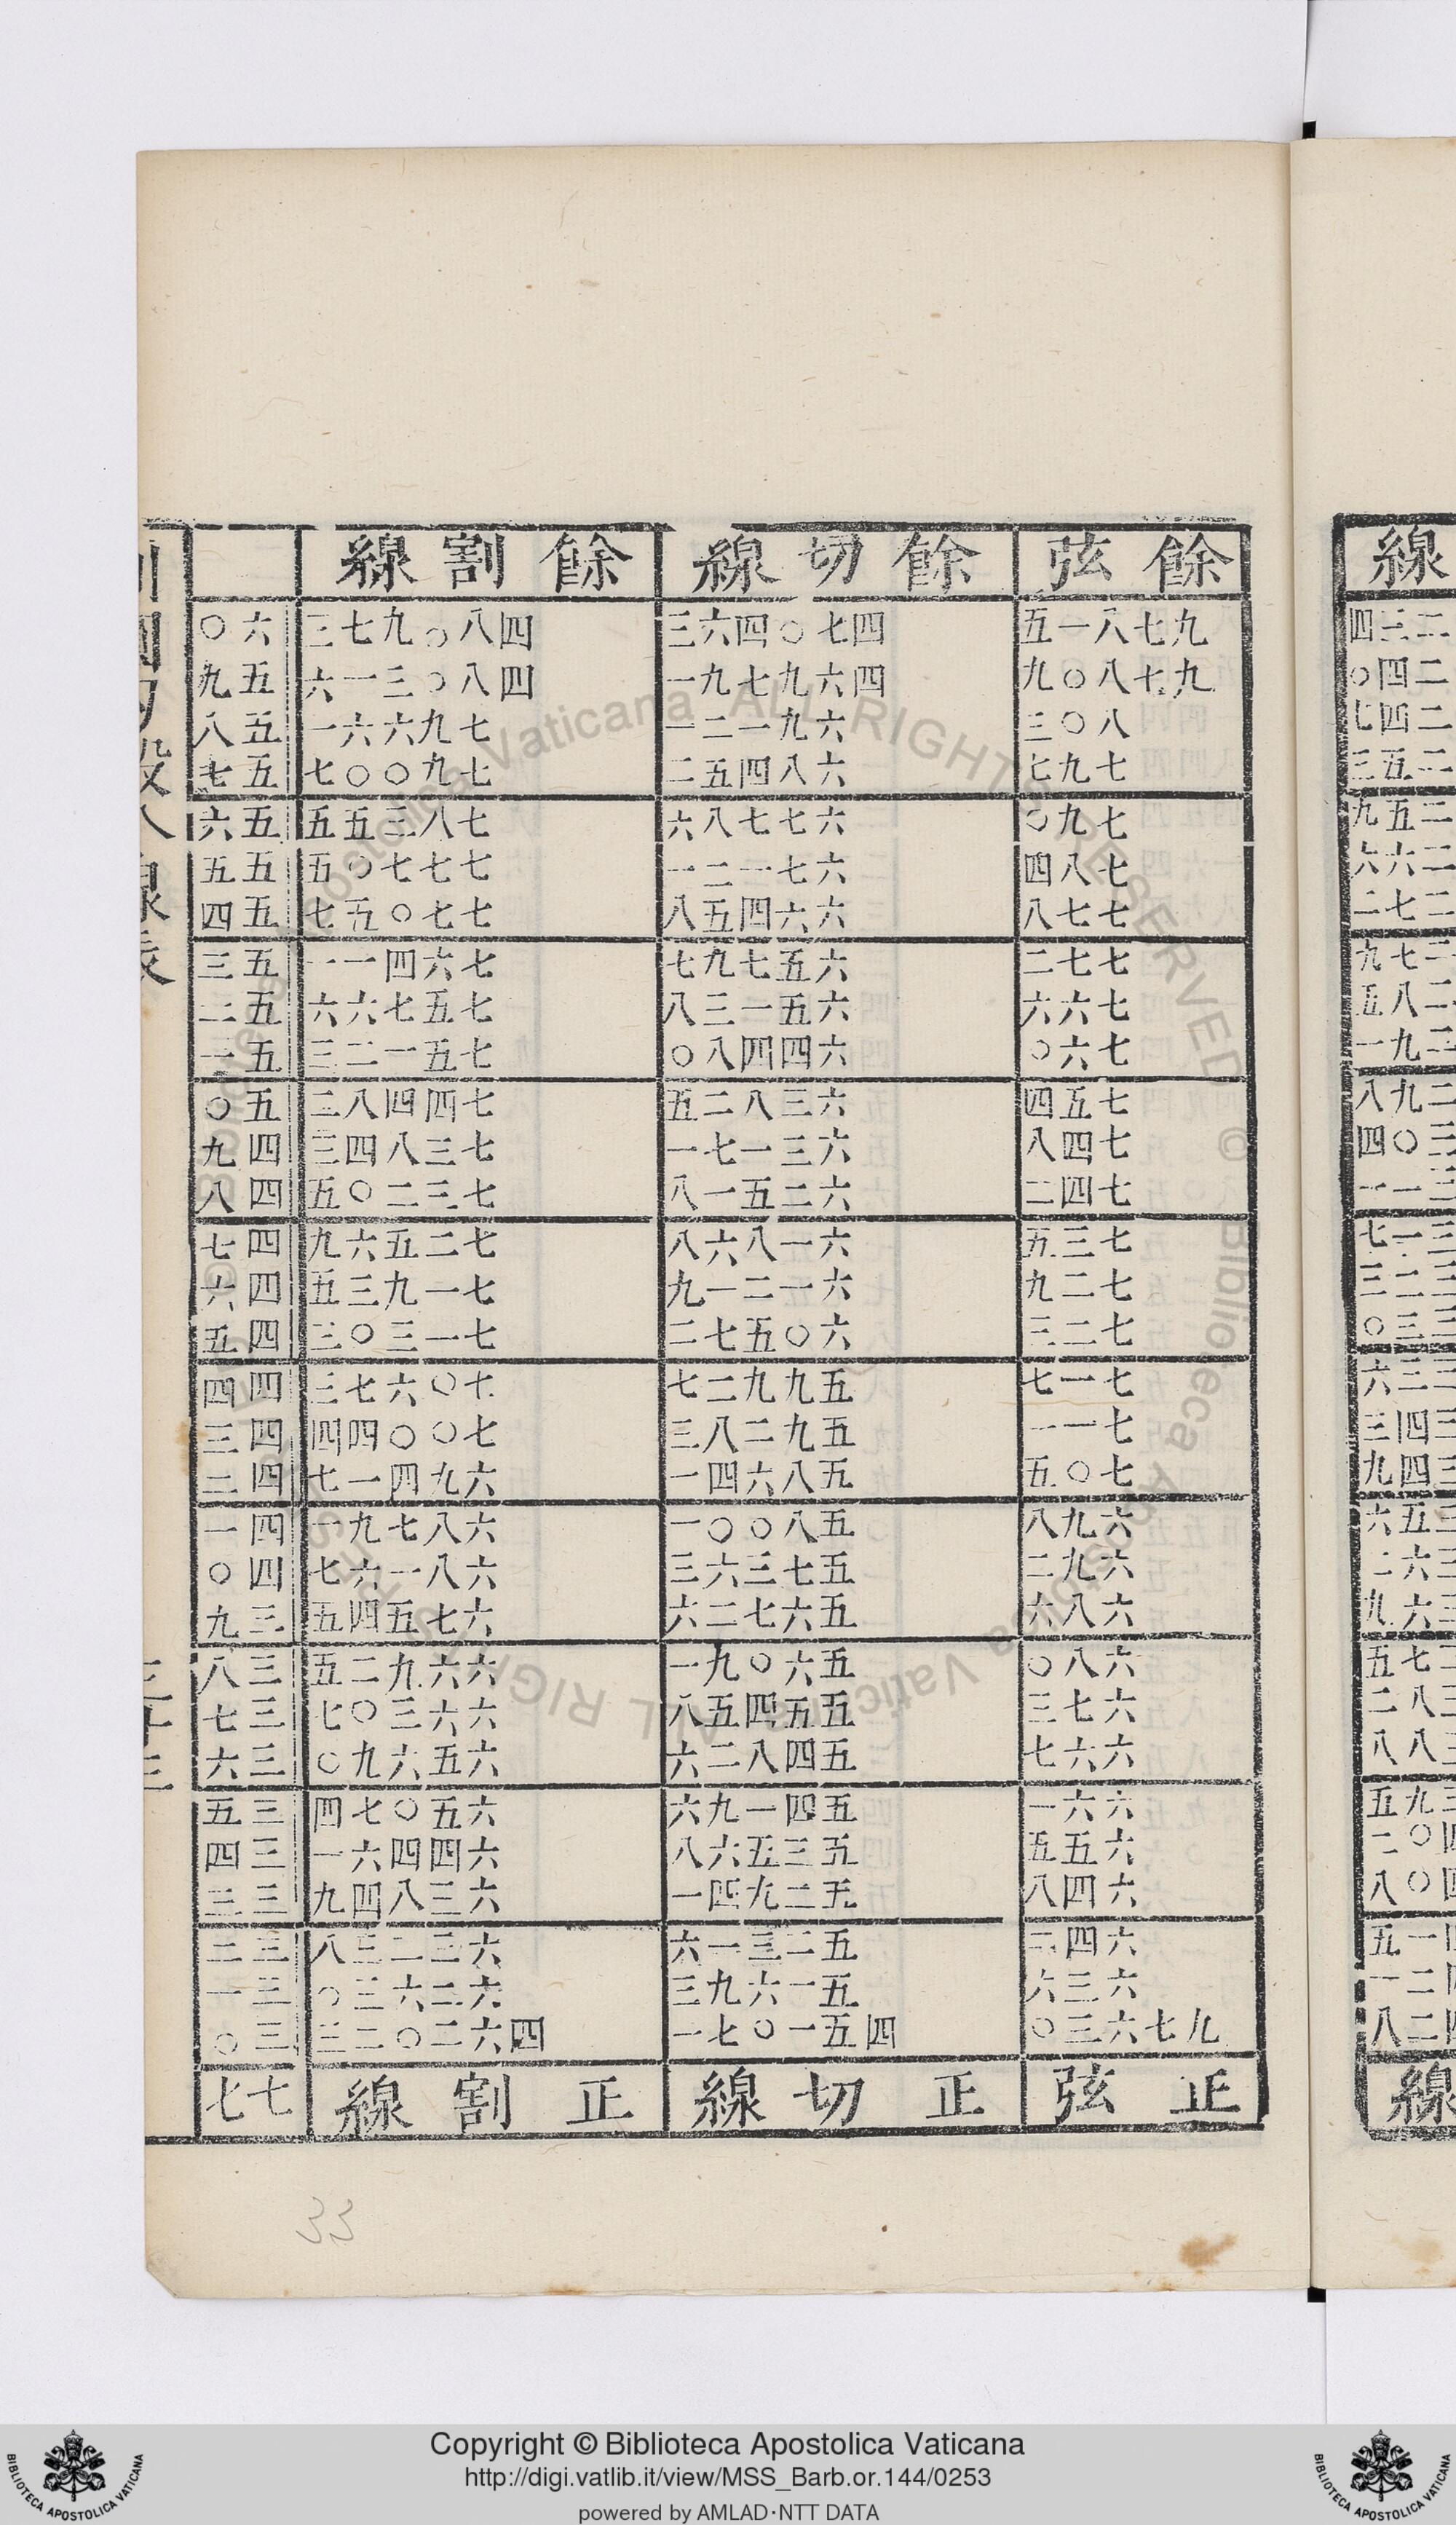 餘弦 餘切線 餘割線
九七八一五 四七〇四六三 四八〇九七三 六〇
九七八〇九 四六九七九一 四八〇三一六 五九
八〇三 六九一二一 七九六六一 五八
七九七 六八四五二 七九〇〇七 五七
七九〇 六七七八六 七八三五五 五六
七八四 六七一二一 七七七〇五 五五
七七八 六六四五八 七七〇五七 五四
七七二 六五七九七 七六四一一 五三
七六六 六五一三八 七五七六六 五二
七六〇 六四四八〇 七五一二三 五一
七五四 六三八二五 七四四八二 五〇
七四八 六三一七一 七三八四三 四九
七四二 六二五一八 七三二〇五 四八
七三五 六一八六八 七二五六九 四七
七二九 六一二一九 七一九三五 四六
七二三 六〇五七二 七一三〇三 四五
七一七 五九九二七 七〇六七三 四四
七一一 五九二八三 七〇〇四四 四三
七〇五 五八六四一 六九四一七 四二
六九八 五八〇〇一 六八七九一 四一
六九二 五七三六三 六八一六七 四〇
六八六 五六七二六 六七五四五 三九
六八〇 五六〇九一 六六九二五 三八
六七三 五五四五八 六六三〇七 三七
六六七 五四八二六 六五六九〇 三六
六六一 五四一九六 六五〇七四 三五
六五五 五三五六八 六四四六一 三四
六四八 五二九四一 六三八四九 三三
六四二 五二三一六 六三二三八 三二
六三六 五一六九三 六二六三〇 三一
九七六三〇 四五一〇七一 四六二〇二三 三〇
正弦 正切線 正割線 七七
33
Copyright © Biblioteca Apostolica Vaticana
http://digi.vatlib.it/view/MSS_Barb.or.144/0253
powered by AMLAD·NTT DATA